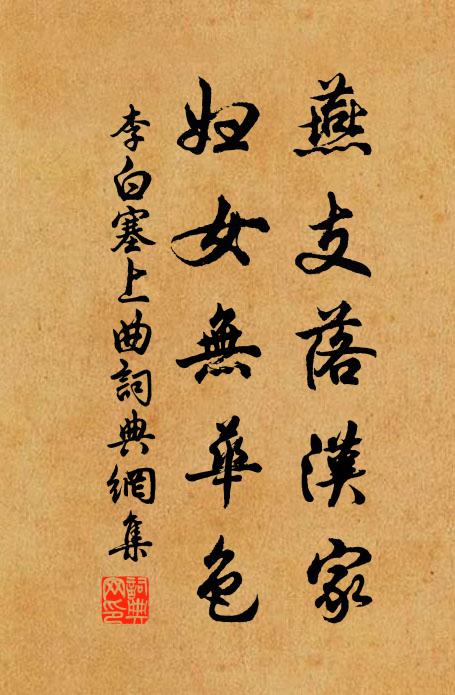 燕支落漢家
妇女無華色
李白塞上曲詞典網集
詞典網印